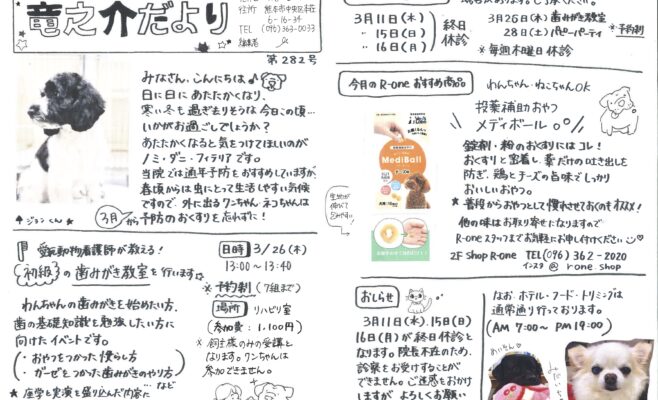 竜之介だより
熊本市中央区本荘
6-16-34
TEL (096) 363-0033
第282号
みなさん、こんにちは♪
日に日にあたたかくなり、
寒い冬も過ぎ去りそうな今日この頃…
いかがお過ごしでしょうか?
あたたかくなると気をつけてほしいのが
ノミ・ダニ・フィラリアです。
当院では通年予防をおすすめしていますが、
春頃からは虫にとって生活しやすい気候
ですので、外に出るワンちゃん・ネコちゃんは
3月から予防のおくすりを忘れずに!
↑ジョンくん★
愛玩動物看護師が教える!
初級の歯みがき教室を行います☆
わんちゃんの歯みがきを始めたい方、
歯の基礎知識を勉強したい方に
向けたイベントです。
・おやつをつかった慣らし方
・ガーゼをつかった歯みがきのやり方
など
★座学と実演を盛り込んだ内容に…
日時 3/26(木)
13:00〜13:40
※予約制(7組まで)
場所 リハビリ室
(参加費:1,100円)
※飼主様のみの受講と
なります。ワンちゃんは
参加できません。
3月11日(水)
15日(日)
16日(月)
終日
休診
3月26日(木)歯みがき教室
28日(土)パピーパーティ
※予約制
※毎週木曜日休診
今月のR-oneおすすめ商品
わんちゃん・ねこちゃんOK
投薬補助おやつ
メディボール
MediBall
チーズ味
錠剤・粉のおくすりにはコレ!
おくすりと密着し、薬だけの吐き出しを
防ぎ、鶏とチーズの旨味でしっかり
おいしいおやつ。
★普段からおやつとして慣れさせておくのもオススメ!
他の味はお取り寄せになりますので
R-oneスタッフまでお気軽にお申し付けください♡
2F Shop R-one TEL(096)362-2020
インスタ @ r_one_shop
おしらせ
3月11日(水)、15日(日)
16日(月)が終日休診と
なります。院長不在のため、
診察をお受けすることが
できません。ご迷惑をおかけ
しますが、よろしくお願い
なお、ホテル・フード・トリミングは
通常通り行っております。
(AM 7:00〜 PM 19:00)